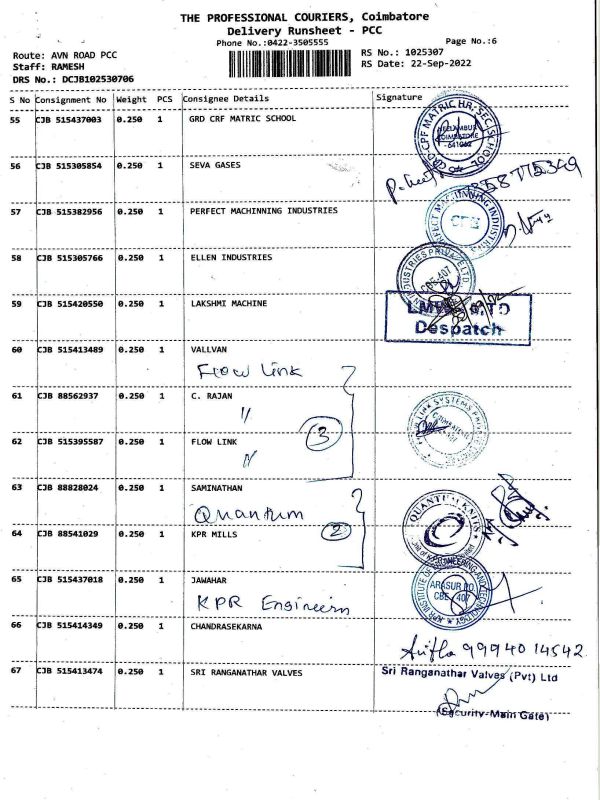 THE PROFESSIONAL COURIERS, Coimbatore
Delivery Runsheet - PCC
Phone No.:0422-3505555
Page No.:6
Route: AVN ROAD PCC
RS No.: 1025307
Staff: RAMESH
RS Date: 22-Sep-2022
DRS No.: DCJB102530706
S No Consignment No Weight PCS Consignee Details Signature
55 CJB 515437003 0.250 1 GRD CRF MATRIC SCHOOL
NEELAMBUR
COIMBATORE
641062
56 CJB 515305854 0.250 1 SEVA GASES
57 CJB 515382956 0.250 1 PERFECT MACHINNING INDUSTRIES
58 CJB 515305766 0.250 1 ELLEN INDUSTRIES
CBE-407
59 CJB 515420550 0.250 1 LAKSHMI MACHINE
Despatch
60 CJB 515413489 0.250 1 VALLVAN
Flow Link
61 CJB 88562937 0.250 1 C. RAJAN
"
3
62 CJB 515395587 0.250 1 FLOW LINK
"
63 CJB 88828024 0.250 1 SAMINATHAN
Quantum
QUANTUM KNITS
2
64 CJB 88541029 0.250 1 KPR MILLS
65 CJB 515437018 0.250 1 JAWAHAR
KPR Engineern
KPR INSTITUTE OF ENGINEERING AND TECHNOLOGY
ARASUR PO
CBE-407
66 CJB 515414349 0.250 1 CHANDRASEKARNA
9994014542
67 CJB 515413474 0.250 1 SRI RANGANATHAR VALVES
Sri Ranganathar Valves (Pvt) Ltd
(Security-Main Gate)